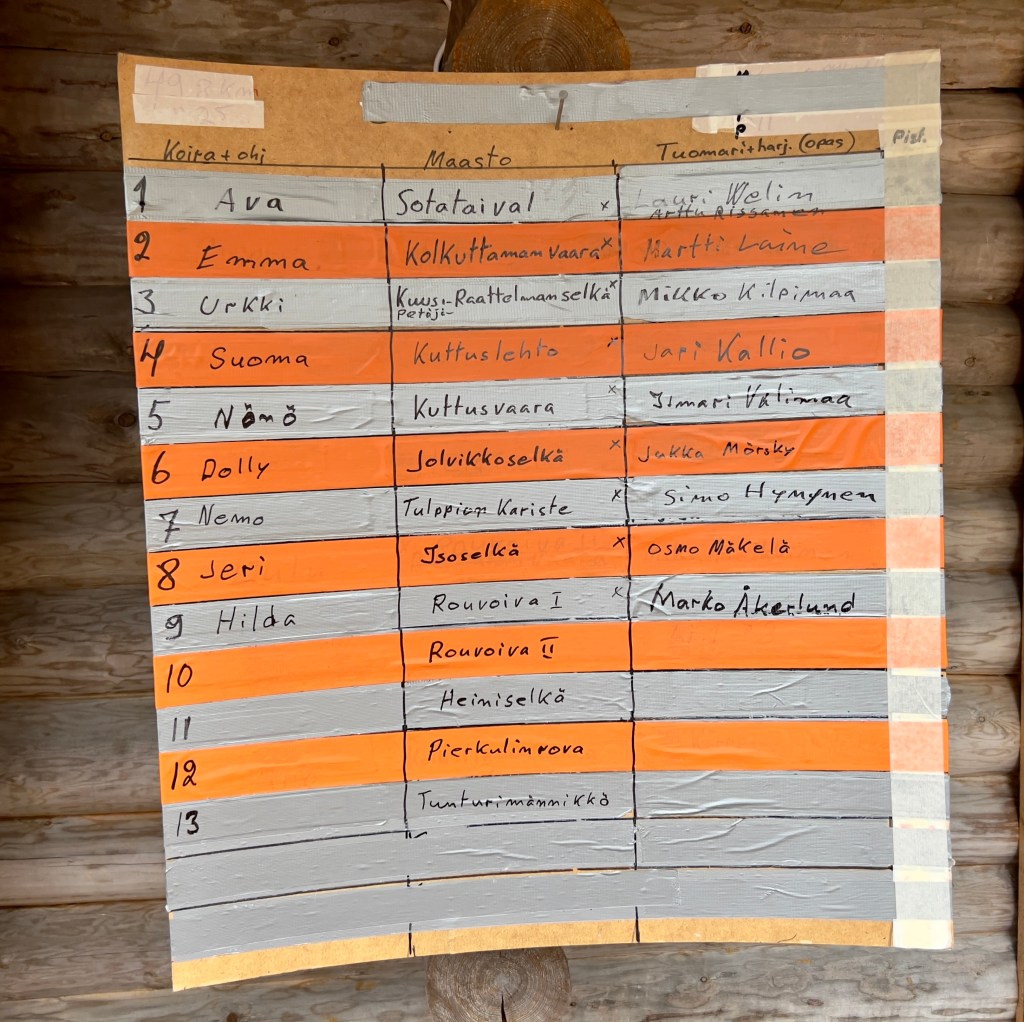 49.8 km
Koira + ohj Maasto Tuomari+harj. (opas) Pist.
1 Ava Sotataival x Lauri Welin
Arttu Rissanen
2 Emma Kolkuttamanvaara x Martti Laine
3 Urkki Kuusi-Raattelmanselkä x Mikko Kilpimaa
Petäji-
4 Suoma Kuttuslehto x Jari Kallio
5 Nömö Kuttusvaara x Ismari Välimaa
6 Dolly Jolvikkoselkä x Jukka Mörsky
7 Nemo Tulppion Kariste x Simo Hynynen
8 Jeri Isoselkä x Osmo Mäkelä
9 Hilda Rouvoiva I x Marko Åkerlund
10 Rouvoiva II
11 Heiniselkä
12 Pierkulinrova
13 Tunturimännikkö